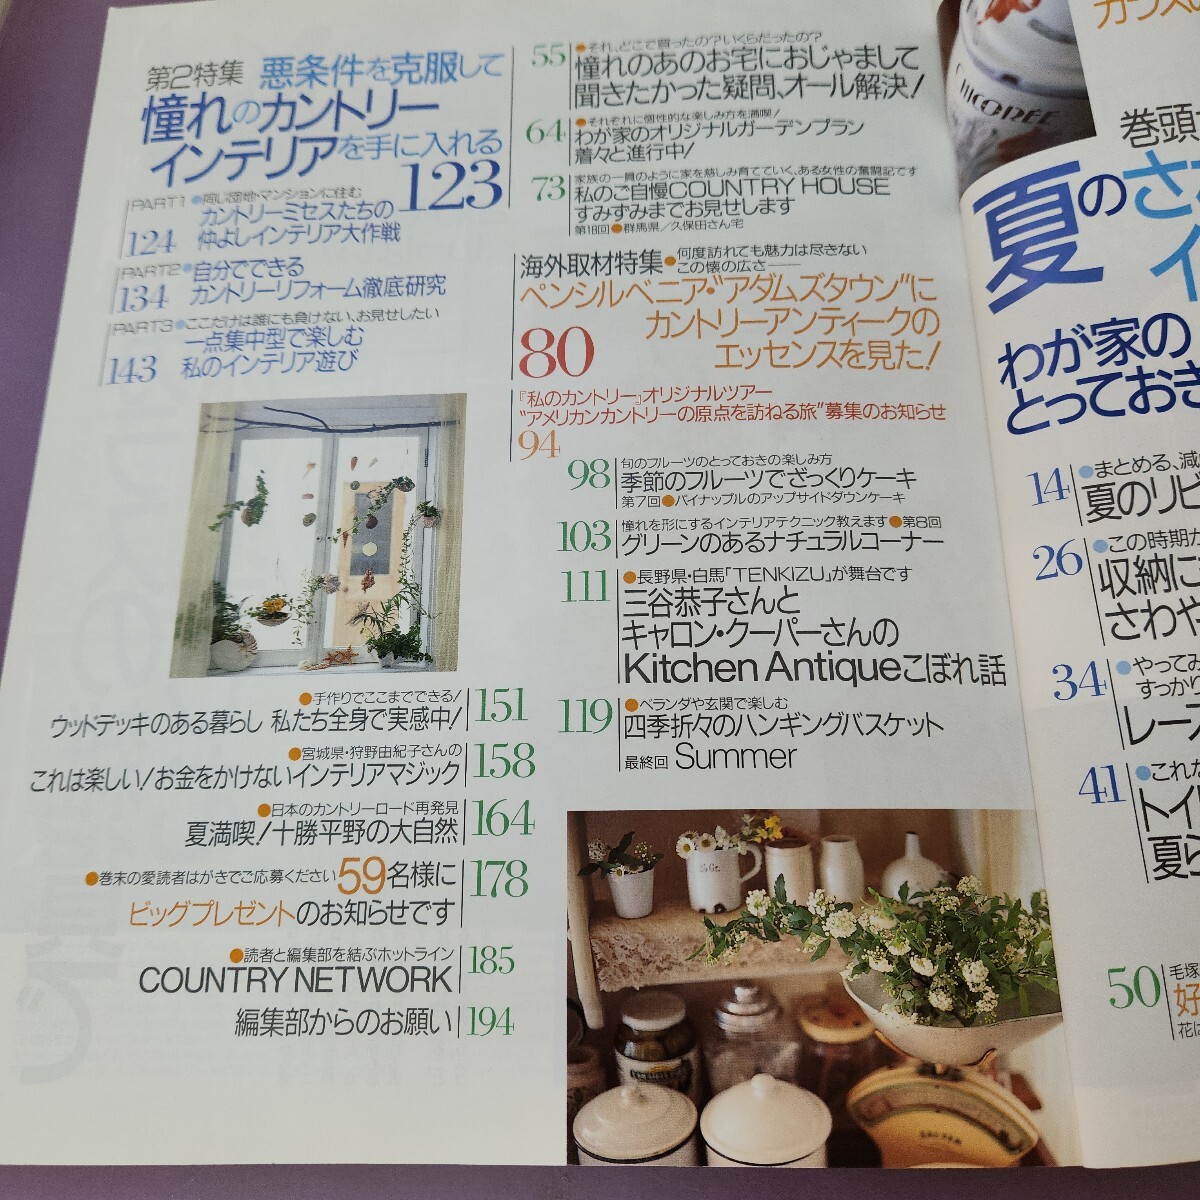 第2特集 悪条件を克服して
憧れのカントリー
インテリアを手に入れる
123
PART1 ●同じ団地・マンションに住む
124 カントリーミセスたちの
仲よしインテリア大作戦
PART2 ●自分でできる
134 カントリーリフォーム徹底研究
PART3 ●ここだけは誰にも負けない、お見せしたい
143 一点集中型で楽しむ
私のインテリア遊び
●手作りでここまでできる!
ウッドデッキのある暮らし 私たち全身で実感中! 151
●宮城県・狩野由紀子さんの
これは楽しい!お金をかけないインテリアマジック 158
●日本のカントリーロード再発見
夏満喫!十勝平野の大自然 164
●巻末の愛読者はがきでご応募ください 59名様に
ビッグプレゼントのお知らせです 178
●読者と編集部を結ぶホットライン
COUNTRY NETWORK 185
編集部からのお願い 194
55 ●それ、どこで買ったの?いくらだったの?
憧れのあのお宅におじゃまして
聞きたかった疑問、オール解決!
64 ●それぞれに個性的な楽しみ方を満喫!
わが家のオリジナルガーデンプラン
着々と進行中!
73 家族の一員のように家を慈しみ育てていく、ある女性の奮闘記です
私のご自慢COUNTRY HOUSE
すみずみまでお見せします
第18回●群馬県/久保田さん宅
海外取材特集●何度訪れても魅力は尽きない
この懐の広さ――
ペンシルベニア・"アダムズタウン"に
カントリーアンティークの
80 エッセンスを見た!
『私のカントリー』オリジナルツアー
"アメリカンカントリーの原点を訪ねる旅"募集のお知らせ
94
98 旬のフルーツのとっておきの楽しみ方
季節のフルーツでざっくりケーキ
第7回●パイナップルのアップサイドダウンケーキ
103 憧れを形にするインテリアテクニック教えます●第8回
グリーンのあるナチュラルコーナー
111 ●長野県・白馬「TENKIZU」が舞台です
三谷恭子さんと
キャロン・クーパーさんの
Kitchen Antiqueこぼれ話
119 ●ベランダや玄関で楽しむ
四季折々のハンギングバスケット
最終回 Summer
CHICOPÉE
巻頭
夏のさ
イ
わが家の
とっておき
14 ●まとめる、減
夏のリビ
26 ●この時期か
収納に
さわや
34 ●やってみ
すっかり
レース
41 ●これな
トイレ
夏ら
50 毛塚
好
花は